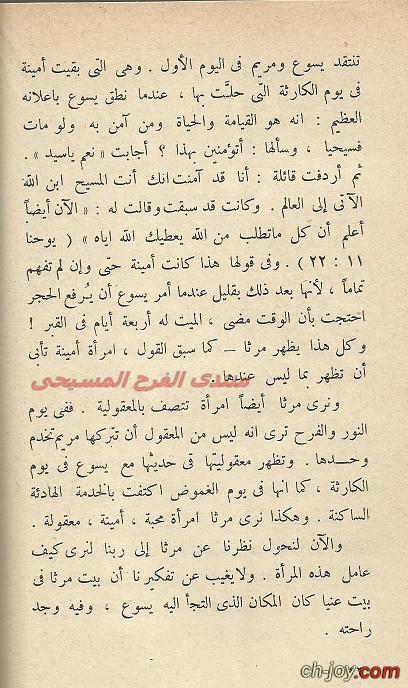 تنتقد يسوع ومريم فى اليوم الأول . وهى التى بقيت أمينة
فى يوم الكارثة التى حلـَّت بها ، عندما نطق يسوع باعلانه
العظيم : انه هو القيامة والحياة ومن آمن به ولو مات
فسيحيا ، وسألها : أتؤمنين بهذا ؟ أجابت « نعم ياسيد » .
ثم أردفت قائلة : أنا قد آمنت انك أنت المسيح ابن الله
الآتى إلى العالم . وكانت قد سبقت وقالت له : « الآن أيضاً
أعلم أن كل ماتطلب من الله يعطيك الله اياه » ( يوحنا
١١ : ٢٢ ) . وفى قولها هذا كانت أمينة حتى وإن لم تفهم
تماماً ، لأنها بعد ذلك بقليل عندما أمر يسوع أن يُرفع الحجر
احتجت بأن الوقت مضى ، الميت له أربعة أيام فى القبر !
وكل هذا يظهر مرثا — كما سبق القول ، امرأة أمينة تأبى
أن تظهر بما ليس عندها .
منتدى الفرح المسيحى
ونرى مرثا أيضاً امرأة تتصف بالمعقولية . ففى يوم
النور والفرح ترى انه ليس من المعقول أن تتركها مريم تخدم
وحـــدها . وتظهر معقوليتها فى حديثها مع يسوع فى يوم
الكارثة ، كما انها فى يوم الغموض اكتفت بالخدمة الهادئة
الساكنة . وهكذا نرى مرثا امرأة محبة ، أمينة ، معقولة .
والآن لنحول نظرنا عن مرثا إلى ربنا لنرى كيف
عامل هذه المرأة . ولا يغيب عن تفكيرنا أن بيت مرثا فى
بيت عنيا كان المكان الذى التجأ اليه يسوع ، وفيه وجد
راحته .
ch-joy.com